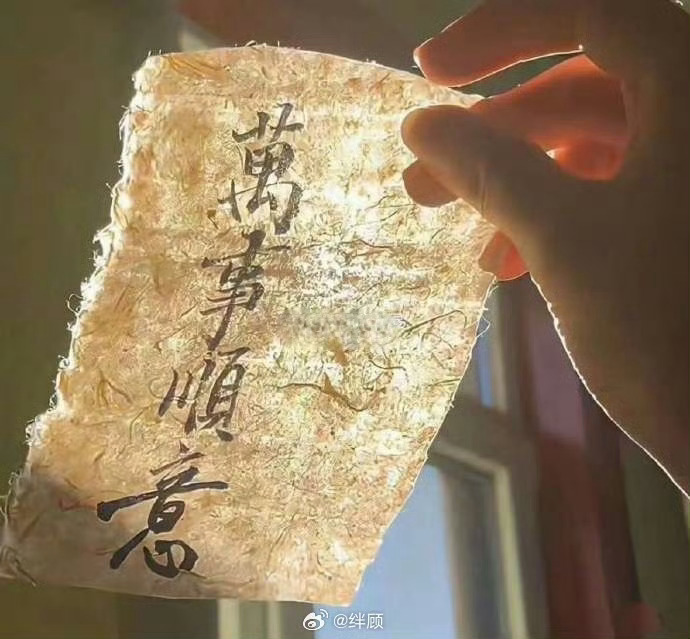 萬事順意
@绊顾